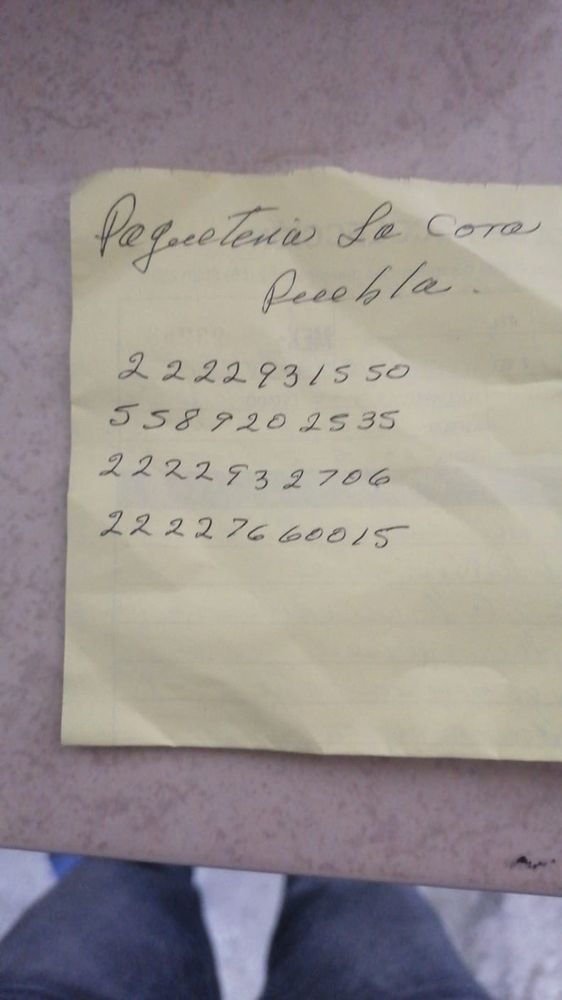 Paqueteria La Cora
Puebla.
2222931550
5589202535
2222932706
22227660015